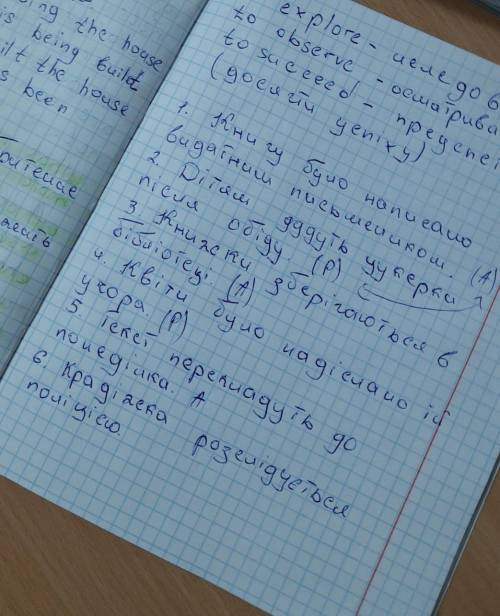 ing the house
is being built
ilt the house
s been
explore - иследов
to observe - осматрива
to succeed - преуспе
(досягти успіху)
1. Книгу було написано
видатним письменником. (A)
2. Дітям дадуть цукерки
після обіду. (P)
3. Книжки зберігаються в
бібліотеці. (A)
4. Квіти було надіслано їй
учора. (P)
5 Текст перекладуть до
понеділка. A
6. Крадіжка розслідується
поліцією.